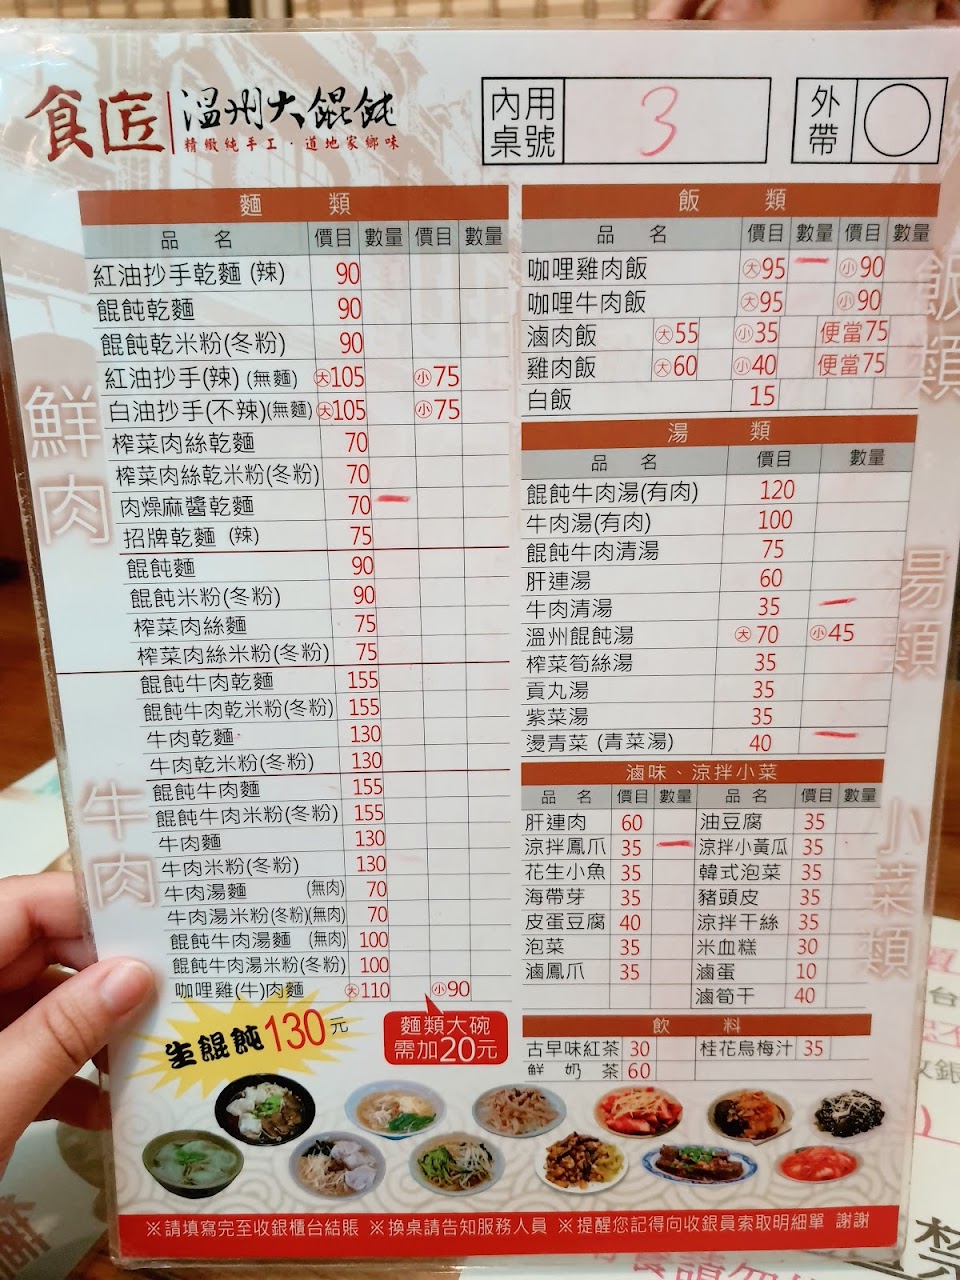 食匠 溫州大餛飩
精緻純手工．道地家鄉味
內用桌號 3 外帶
麵類
品名 價目 數量 價目 數量
鮮肉
紅油抄手乾麵 (辣) 90
餛飩乾麵 90
餛飩乾米粉(冬粉) 90
紅油抄手(辣) (無麵) 大105 小75
白油抄手(不辣)(無麵) 大105 小75
榨菜肉絲乾麵 70
榨菜肉絲乾米粉(冬粉) 70
肉燥麻醬乾麵 70
招牌乾麵 (辣) 75
餛飩麵 90
餛飩米粉(冬粉) 90
榨菜肉絲麵 75
榨菜肉絲米粉(冬粉) 75
牛肉
餛飩牛肉乾麵 155
餛飩牛肉乾米粉(冬粉) 155
牛肉乾麵 130
牛肉乾米粉(冬粉) 130
餛飩牛肉麵 155
餛飩牛肉米粉(冬粉) 155
牛肉麵 130
牛肉米粉(冬粉) 130
牛肉湯麵 (無肉) 70
牛肉湯米粉(冬粉)(無肉) 70
餛飩牛肉湯麵 (無肉) 100
餛飩牛肉湯米粉(冬粉) 100
咖哩雞(牛)肉麵 大110 小90
生餛飩130元
麵類大碗
需加20元
飯類
品名 價目 數量 價目 數量
飯類
咖哩雞肉飯 大95 小90
咖哩牛肉飯 大95 小90
滷肉飯 大55 小35 便當75
雞肉飯 大60 小40 便當75
白飯 15
湯類
品名 價目 數量
湯類
餛飩牛肉湯(有肉) 120
牛肉湯(有肉) 100
餛飩牛肉清湯 75
肝連湯 60
牛肉清湯 35
溫州餛飩湯 大70 小45
榨菜筍絲湯 35
貢丸湯 35
紫菜湯 35
燙青菜 (青菜湯) 40
滷味、涼拌小菜
品名 價目 數量 品名 價目 數量
小菜類
肝連肉 60 油豆腐 35
涼拌鳳爪 35 涼拌小黃瓜 35
花生小魚 35 韓式泡菜 35
海帶芽 35 豬頭皮 35
皮蛋豆腐 40 涼拌干絲 35
泡菜 35 米血糕 30
滷鳳爪 35 滷蛋 10
滷筍干 40
飲料
古早味紅茶 30 桂花烏梅汁 35
鮮奶茶 60
※請填寫完至收銀櫃台結賬 ※換桌請告知服務人員 ※提醒您記得向收銀員索取明細單 謝謝